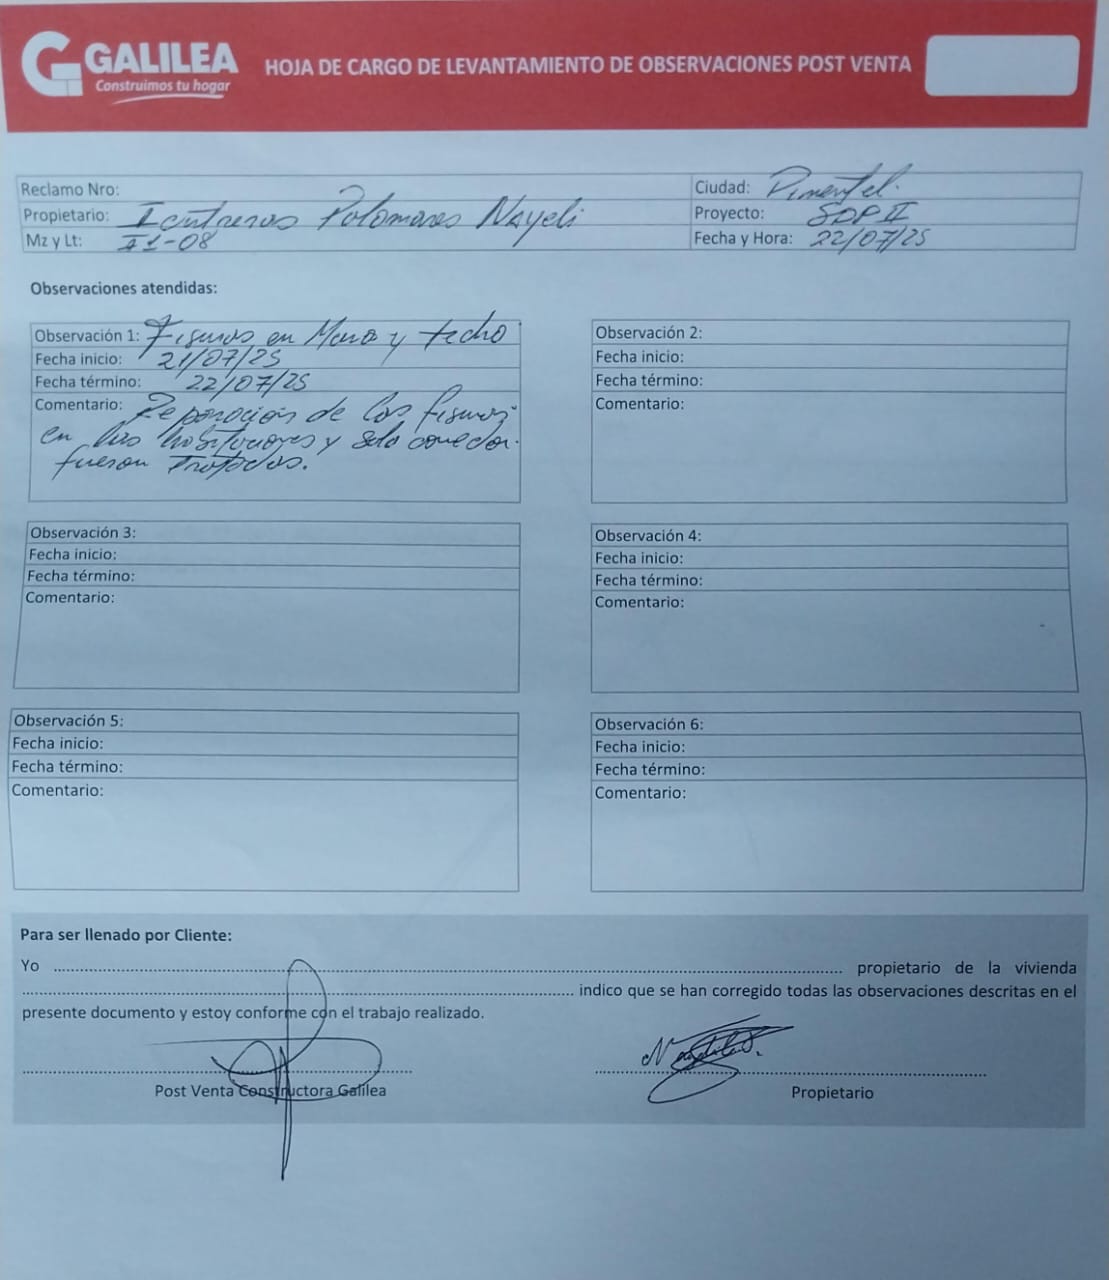 GALILEA
Construimos tu hogar
HOJA DE CARGO DE LEVANTAMIENTO DE OBSERVACIONES POST VENTA
Reclamo Nro:
Ciudad: Pimentel.
Propietario: Palomares Nayeli
Proyecto: SDP II
Mz y Lt: I1-08
Fecha y Hora: 22/07/25
Observaciones atendidas:
Observación 1: Fisuras en Muro y techo
Fecha inicio: 21/07/25
Fecha término: 22/07/25
Comentario: Reparación de las fisuras
en las habitaciones y sala comedor.
fueron Tratadas.
Observación 2:
Fecha inicio:
Fecha término:
Comentario:
Observación 3:
Fecha inicio:
Fecha término:
Comentario:
Observación 4:
Fecha inicio:
Fecha término:
Comentario:
Observación 5:
Fecha inicio:
Fecha término:
Comentario:
Observación 6:
Fecha inicio:
Fecha término:
Comentario:
Para ser llenado por Cliente:
Yo ........ propietario de la vivienda
........ indico que se han corregido todas las observaciones descritas en el
presente documento y estoy conforme con el trabajo realizado.
Post Venta Constructora Galilea
Propietario